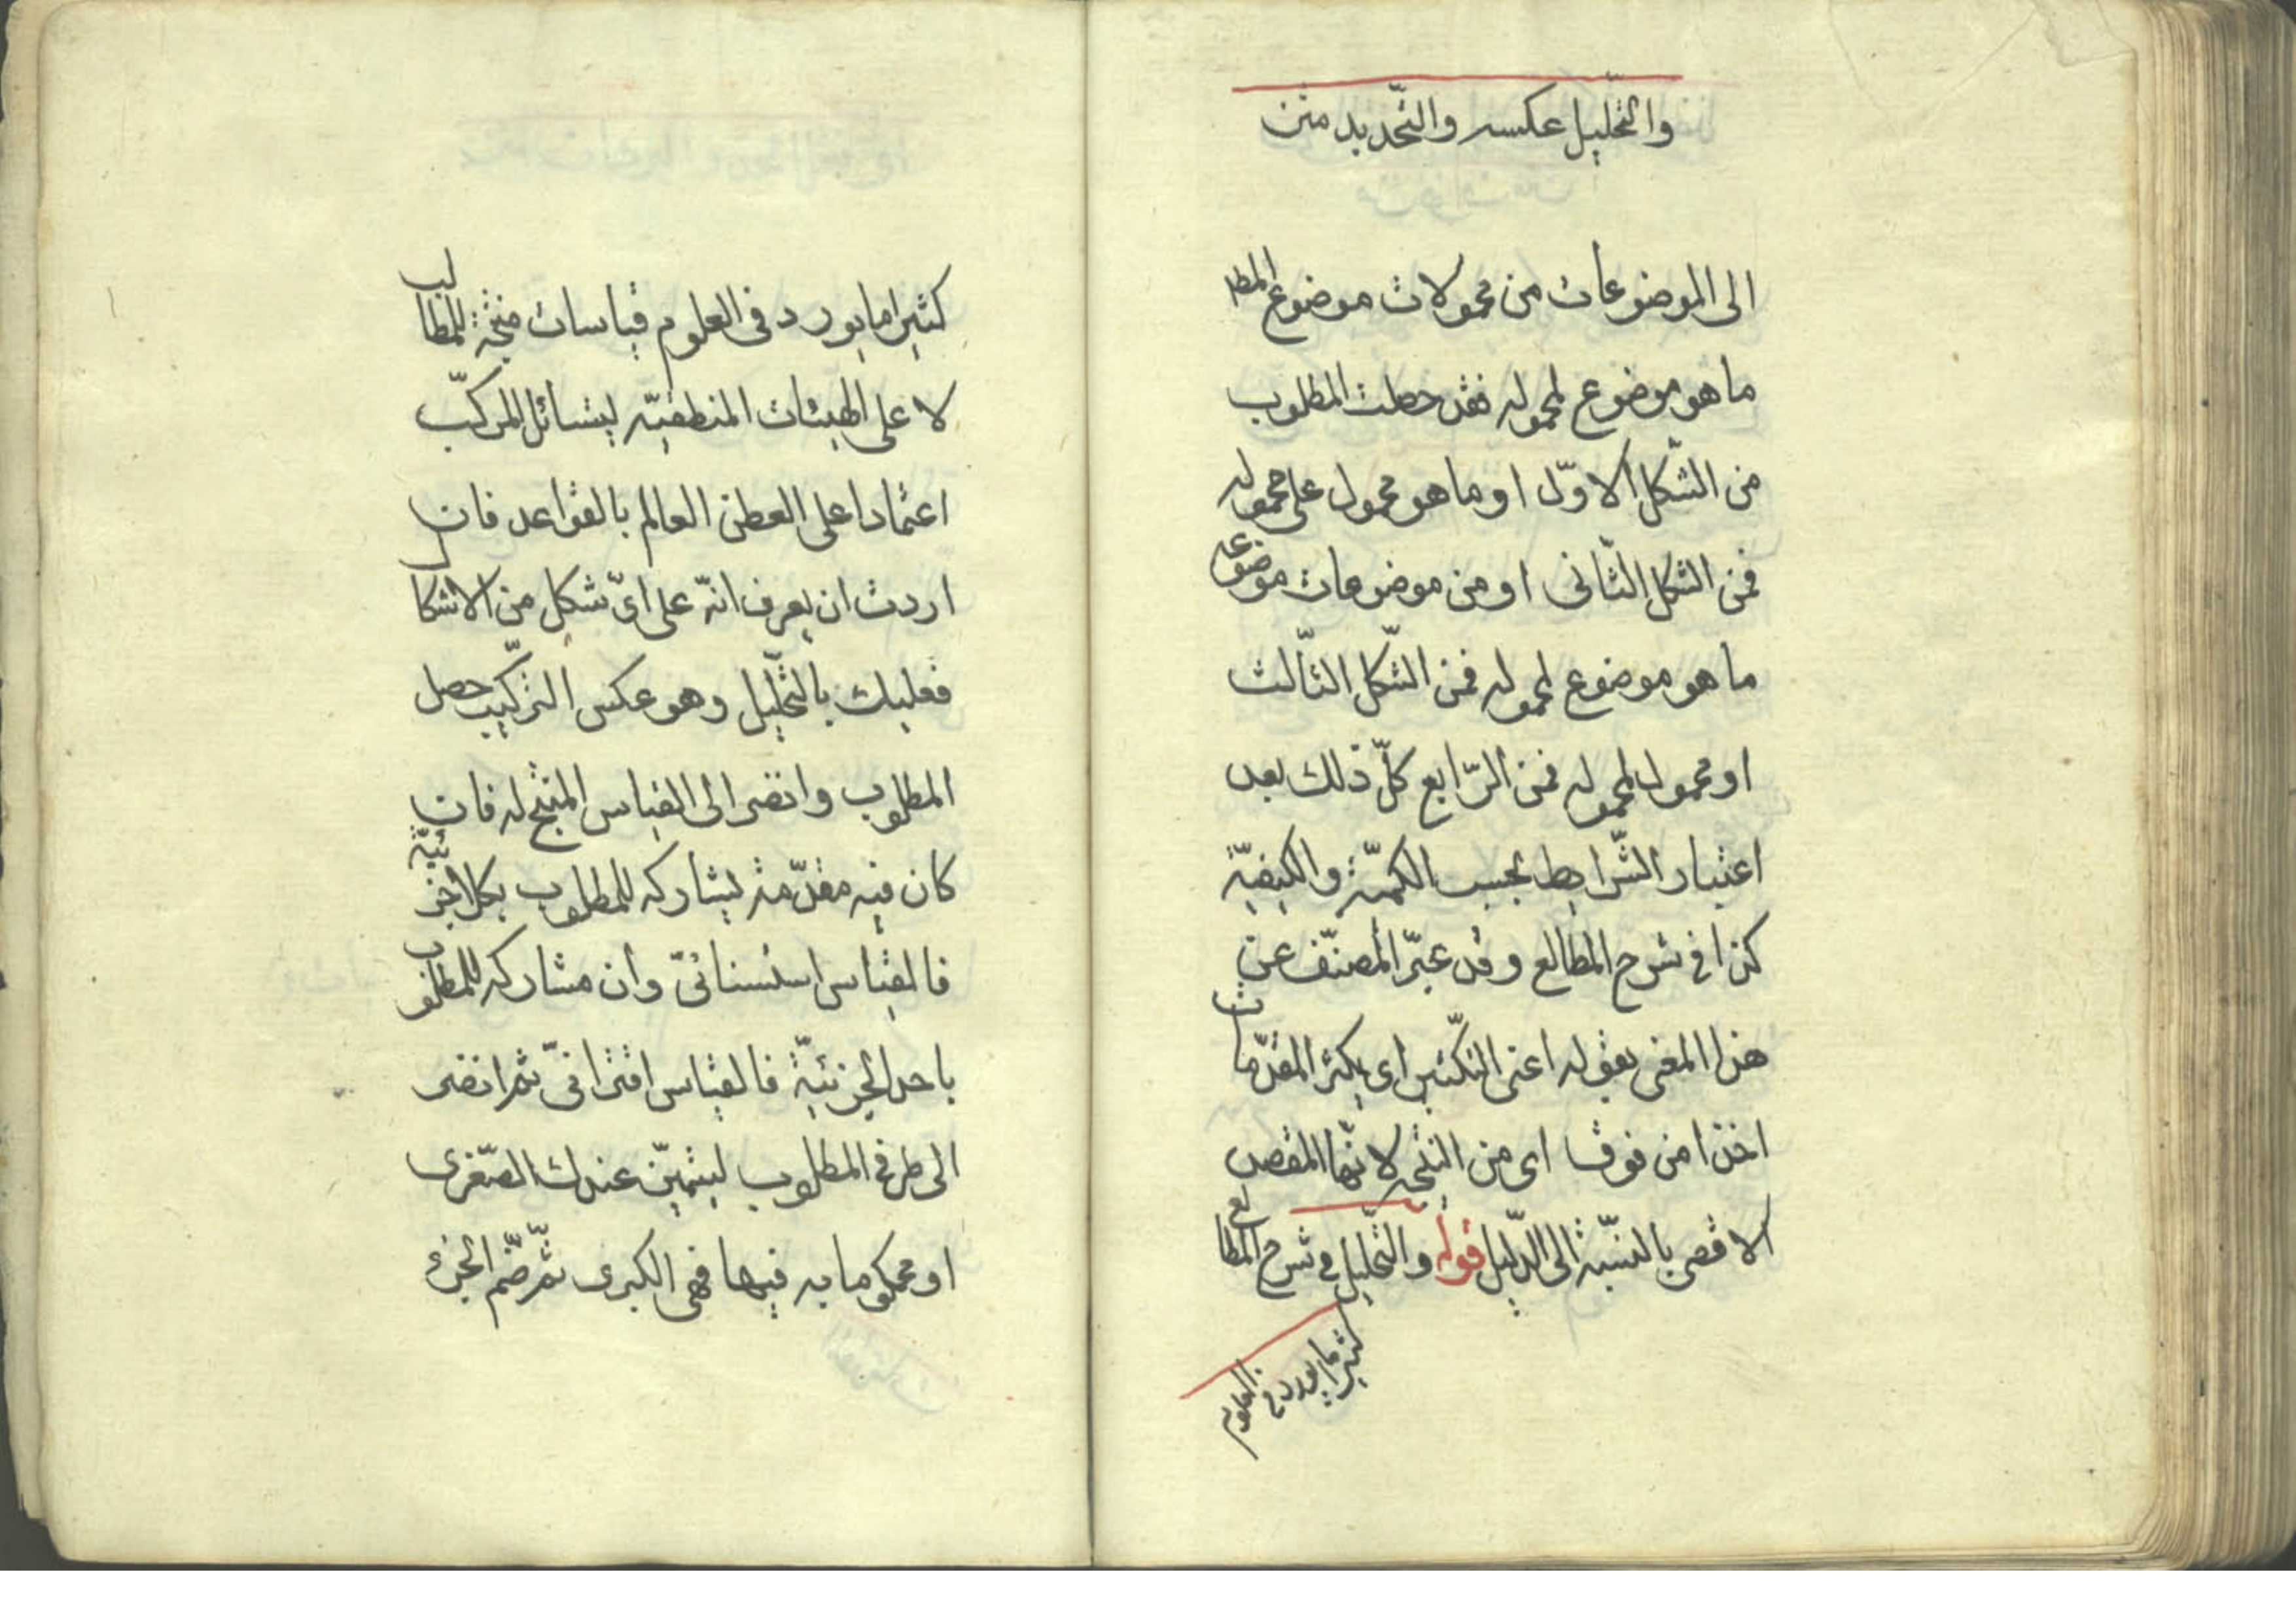 والتحليل عكسه والتحديد متن
الى الموضوعات من محمولات موضوع المط
ما هو موضوع لمحموله فقد حصلت المطلوب
من الشكل الاوّل او ما هو محمول على محموله
فمن الشكل الثانى او من موضوعات موضوعه
ما هو موضوع لمحموله فمن الشكل الثالث
او محمول لمحموله فمن الرّابع كلّ ذلك بعد
اعتبار الشّرايط بحسب الكميّة والكيفيّة
كذا فى شرح المطالع وقد عبّر المصنّف عن
هذا المعنى بقوله اعنى التكثير اى يكثر المقدّمات
اخذا من فوق اى من النتيجه لانّها المقصد
الاقصى بالنسبة الى الدّليل قوله والتحليل فى شرح المطالع
كثيرا ما يورد فى العلوم
كثيرا ما يورد فى العلوم قياسات منتجة للمطالب
لا على الهيئات المنطقيّه المركّب
اعتمادا على الفطن العالم بالقواعد فان
اردت ان يعرف انّه على اىّ شكل من الاشكال
فعليك بالتحليل وهو عكس التركيب حصل
المطلوب وانضر الى القياس المنتج له فان
كان فيه مقدّمة يشاركه للمطلوب بكلا جزئيّة
فالقياس استثنائىّ وان مشاركه للمطلوب
باحد الجزئيّة فالقياس اقترانىّ ثمّ انضر
الى طرفى المطلوب ليتميّز عندك الصّغرى
او محكوما به فيها فهى الكبرى ثمّ ضمّ الجزء